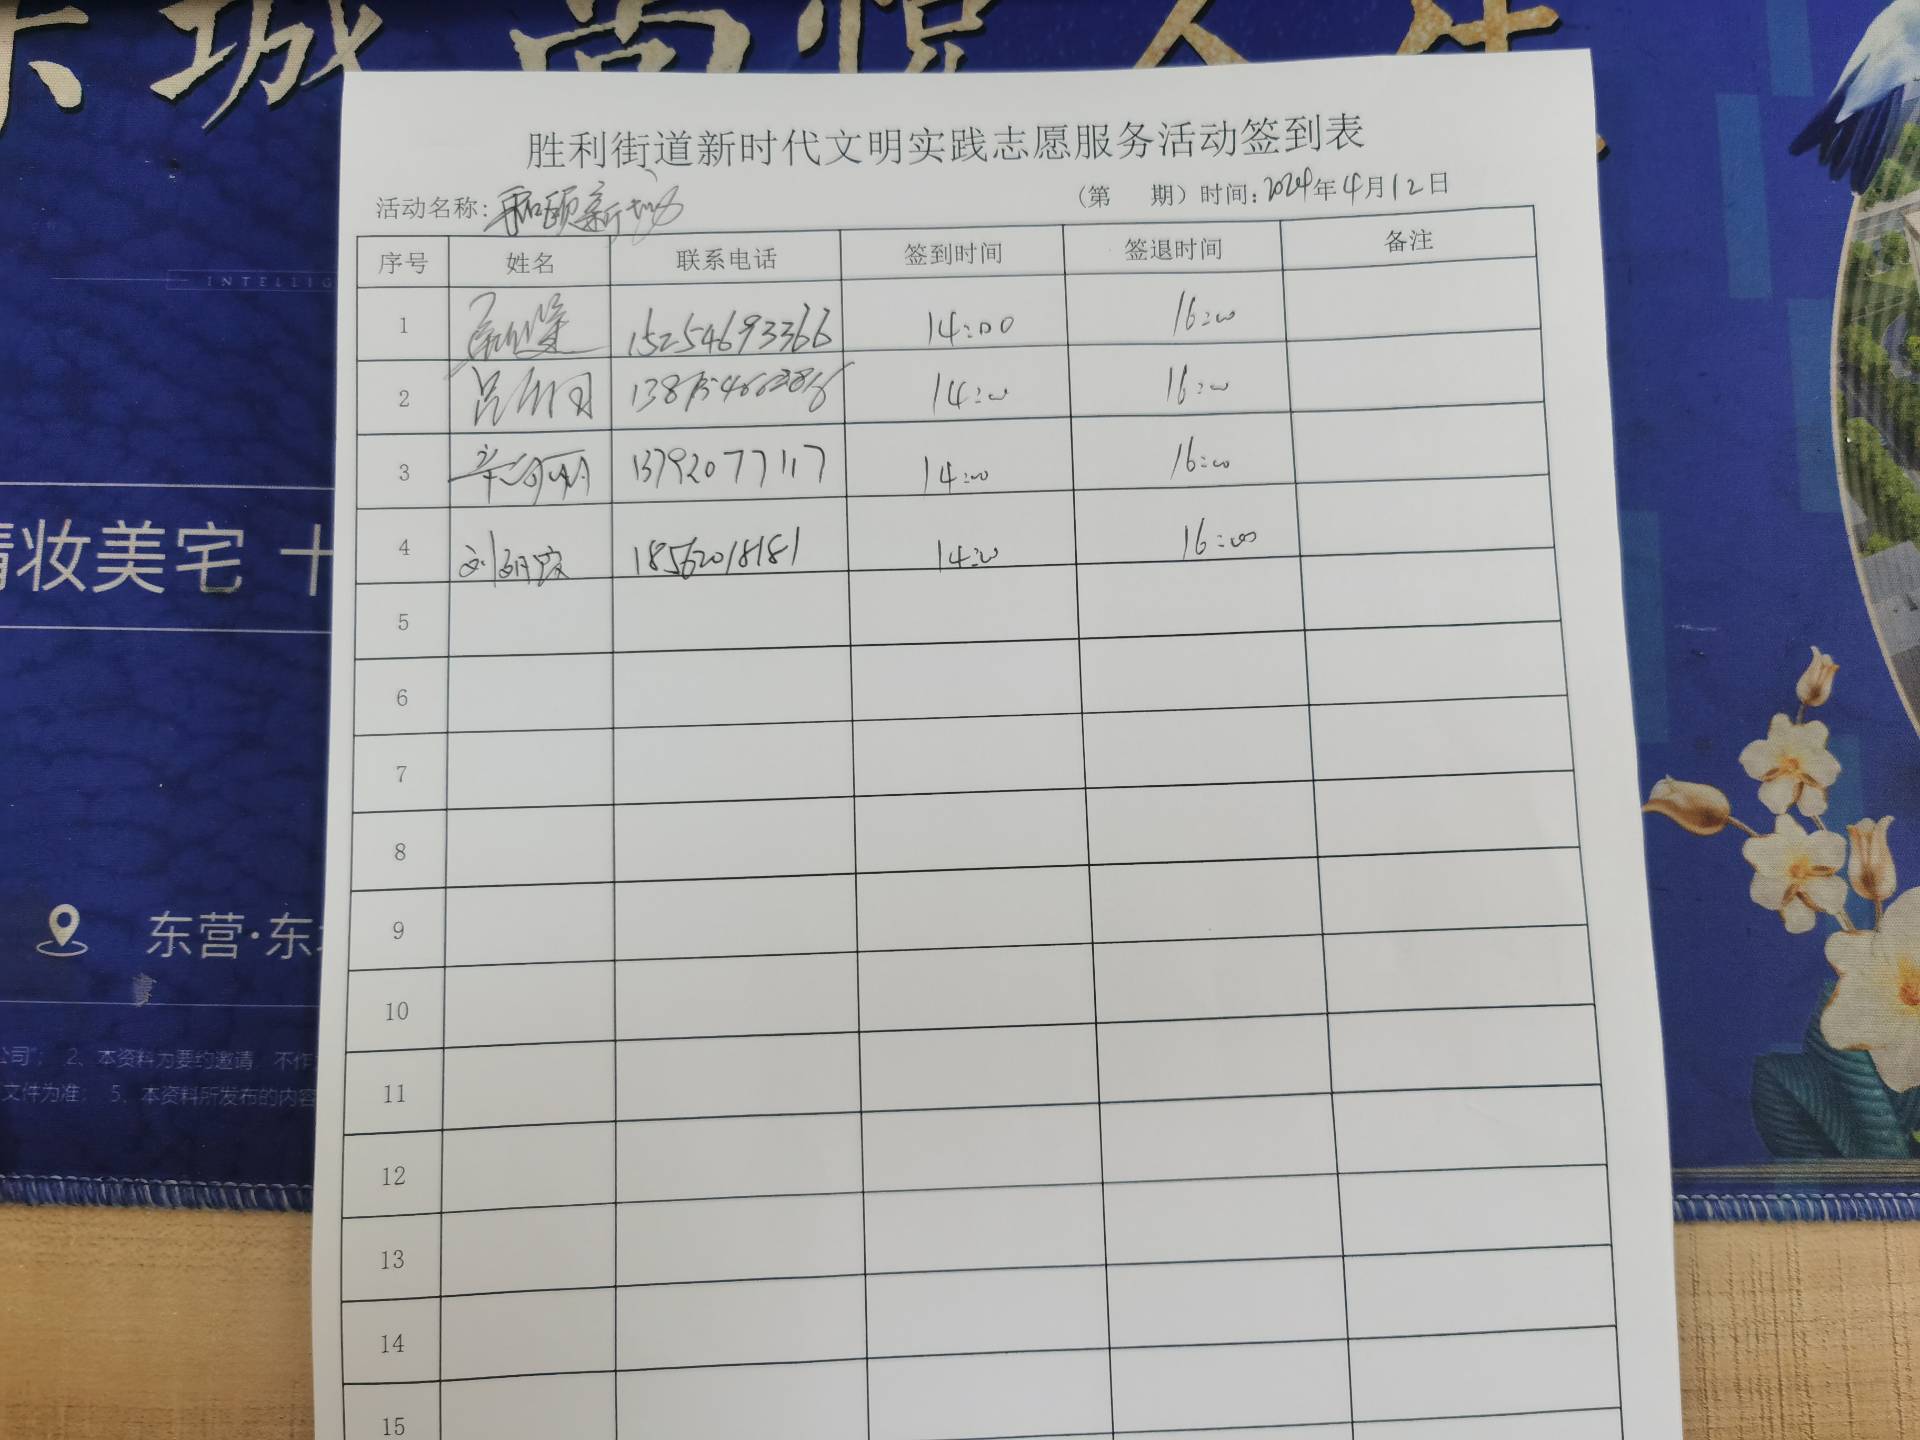 城 尚 悦 人 生
胜利街道新时代文明实践志愿服务活动签到表
活动名称: 和颐新 (第 期) 时间: 2024年4月12日
序号 姓名 联系电话 签到时间 签退时间 备注
1 15254693366 14:00 16:00
2 14:00 16:00
3 13792077117 14:00 16:00
4 刘 18562018181 14:00 16:00
5
6
7
8
9
10
11
12
13
14
15
INTELLIG
妆美宅 十
东营·东
公司"; 2、本资料为要约邀请，不作
文件为准; 5、本资料所发布的内容